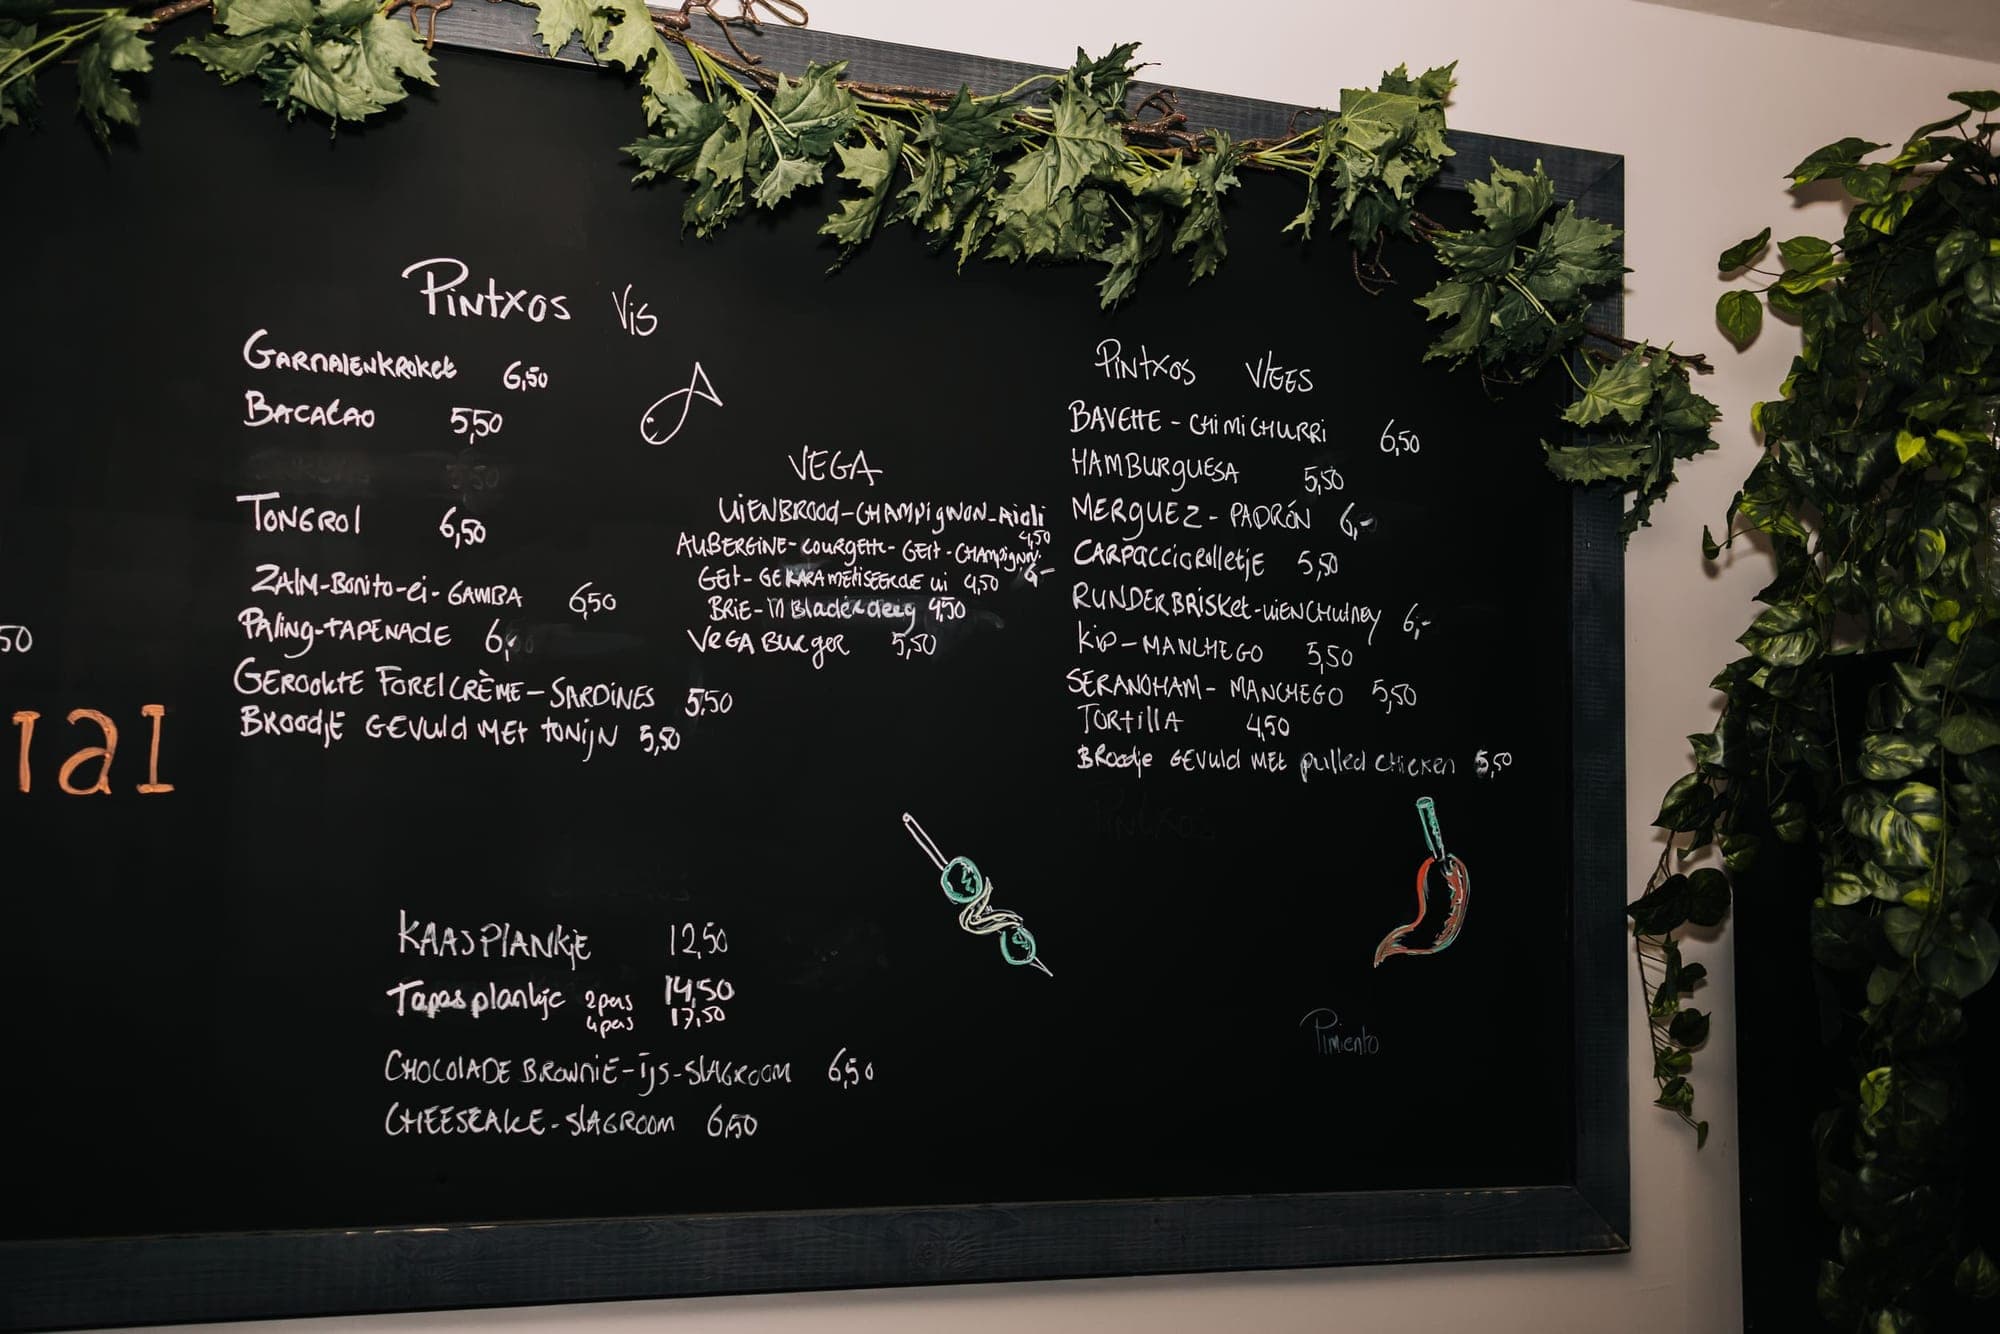 50
Pintxos Vis
Garnalenkroket 6,50
Bacalao 5,50
Tongrol 6,50
Zalm-Bonito-ei-Gamba 6,50
Paling-Tapenade 6,-
Gerookte Forelcrème-Sardines 5,50
Broodje gevuld met tonijn 5,50
VEGA
Uienbrood-Champignon-Aioli 4,50
Aubergine-Courgette-Geit-Champignon 6,-
Geit-Gekarameliseerde ui 4,50
Brie-in Bladerdeeg 4,50
Vega Burger 5,50
Pintxos Vlees
Bavette-Chimichurri 6,50
Hamburguesa 5,50
Merguez-Padrón 6,-
Carpacciorolletje 5,50
Runderbrisket-uienchutney 6,-
Kip-Manchego 5,50
Seranoham-Manchego 5,50
Tortilla 4,50
Broodje gevuld met pulled chicken 5,50
Pintxos
Kaasplankje 12,50
Tapasplankje 2pers 14,50
4pers 17,50
Chocolade Brownie-ijs-slagroom 6,50
Cheesecake-slagroom 6,50
Pimiento